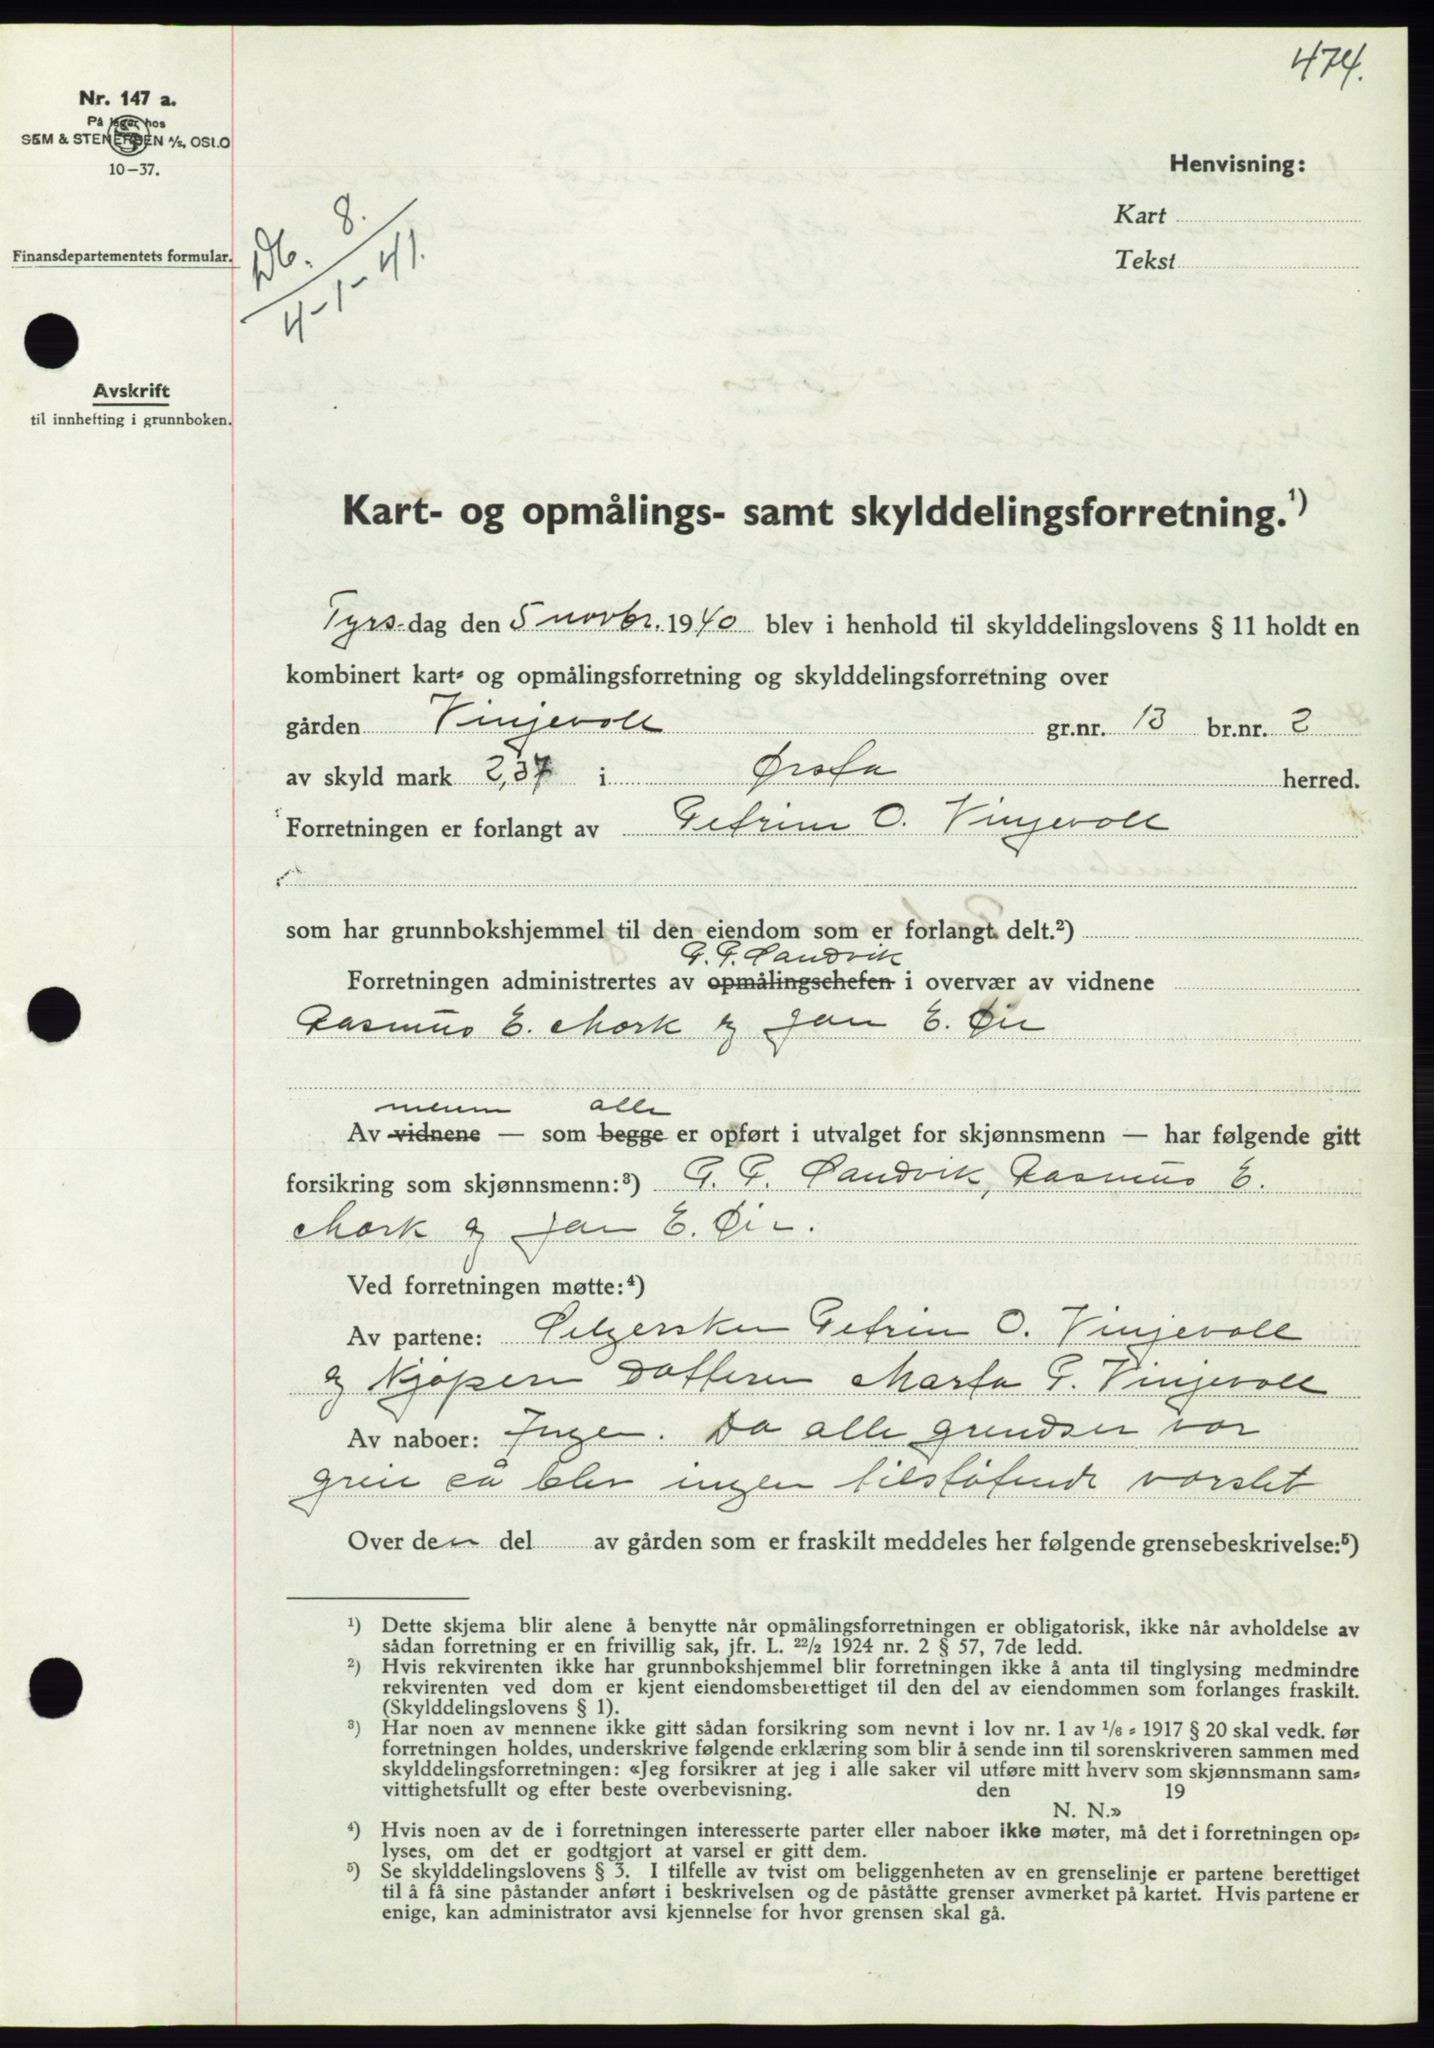 474.
Nr. 147 a.
På lager hos
SEM & STENERSEN A/S, OSLO
10-37.
Henvisning:
Kart
Tekst
Finansdepartementets formular.
Db. 8.
4-1-41.
Avskrift
til innhefting i grunnboken.
Kart- og opmålings- samt skylddelingsforretning.¹)
Tyrsdag den 5 novbr. 1940 blev i henhold til skylddelingslovens § 11 holdt en
kombinert kart- og opmålingsforretning og skylddelingsforretning over
gården Vinjevoll gr.nr. 13 br.nr. 2
av skyld mark 2,37 i Ørsta herred.
Forretningen er forlangt av Petrine O. Vinjevoll
som har grunnbokshjemmel til den eiendom som er forlangt delt.²)
P. P. Sandvik
Forretningen administrertes av opmålingschefen i overvær av vidnene
Rasmus E. Mork og Jan E. Øie
menn alle
Av vidnene — som begge er opført i utvalget for skjønnsmenn — har følgende gitt
forsikring som skjønnsmenn:³) P. P. Sandvik, Rasmus E.
Mork og Jan E. Øie.
Ved forretningen møtte:⁴)
Av partene: Selgersken Petrine O. Vinjevoll
og Kjøperen Datteren Marta P. Vinjevoll
Av naboer: Ingen. Da alle grendser var
grei så blev ingen tilstøtende varslet
Over den del av gården som er fraskilt meddeles her følgende grensebeskrivelse:⁵)
¹) Dette skjema blir alene å benytte når opmålingsforretningen er obligatorisk, ikke når avholdelse av
sådan forretning er en frivillig sak, jfr. L. 22/2 1924 nr. 2 § 57, 7de ledd.
²) Hvis rekvirenten ikke har grunnbokshjemmel blir forretningen ikke å anta til tinglysing medmindre
rekvirenten ved dom er kjent eiendomsberettiget til den del av eiendommen som forlanges fraskilt.
(Skylddelingslovens § 1).
³) Har noen av mennene ikke gitt sådan forsikring som nevnt i lov nr. 1 av 1/6 - 1917 § 20 skal vedk. før
forretningen holdes, underskrive følgende erklæring som blir å sende inn til sorenskriveren sammen med
skylddelingsforretningen: «Jeg forsikrer at jeg i alle saker vil utføre mitt hverv som skjønnsmann sam-
vittighetsfullt og efter beste overbevisning. den 19
N. N.»
⁴) Hvis noen av de i forretningen interesserte parter eller naboer ikke møter, må det i forretningen op-
lyses, om det er godtgjort at varsel er gitt dem.
⁵) Se skylddelingslovens § 3. I tilfelle av tvist om beliggenheten av en grenselinje er partene berettiget
til å få sine påstander anført i beskrivelsen og de påståtte grenser avmerket på kartet. Hvis partene er
enige, kan administrator avsi kjennelse for hvor grensen skal gå.